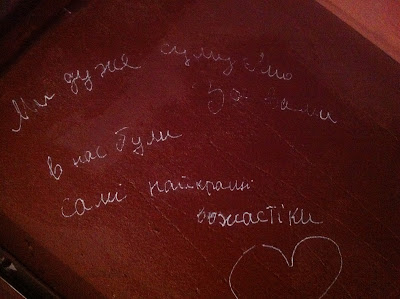 Ми дуже сумуємо
за вами
в нас були
самі найкращі
вожастіки